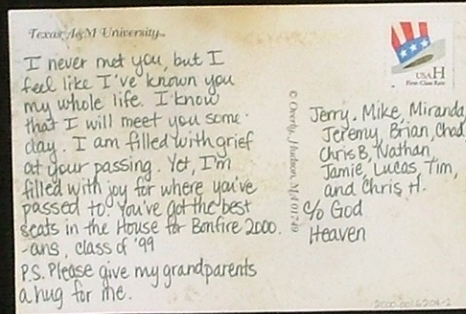 Texas A&M University™
I never met you, but I
feel like I've known you
my whole life. I know
that I will meet you some
day. I am filled with grief
at your passing. Yet, I'm
filled with joy for where you've
passed to. You've got the best
seats in the House for Bonfire 2000.
-ans, class of '99
P.S. Please give my grandparents
a hug for me.
© Overly, Hudson, MA 01749
USA H
First-Class Rate
Jerry, Mike, Miranda,
Jeremy, Brian, Chad,
Chris B, Nathan,
Jamie, Lucas, Tim,
and Chris H.
c/o God
Heaven